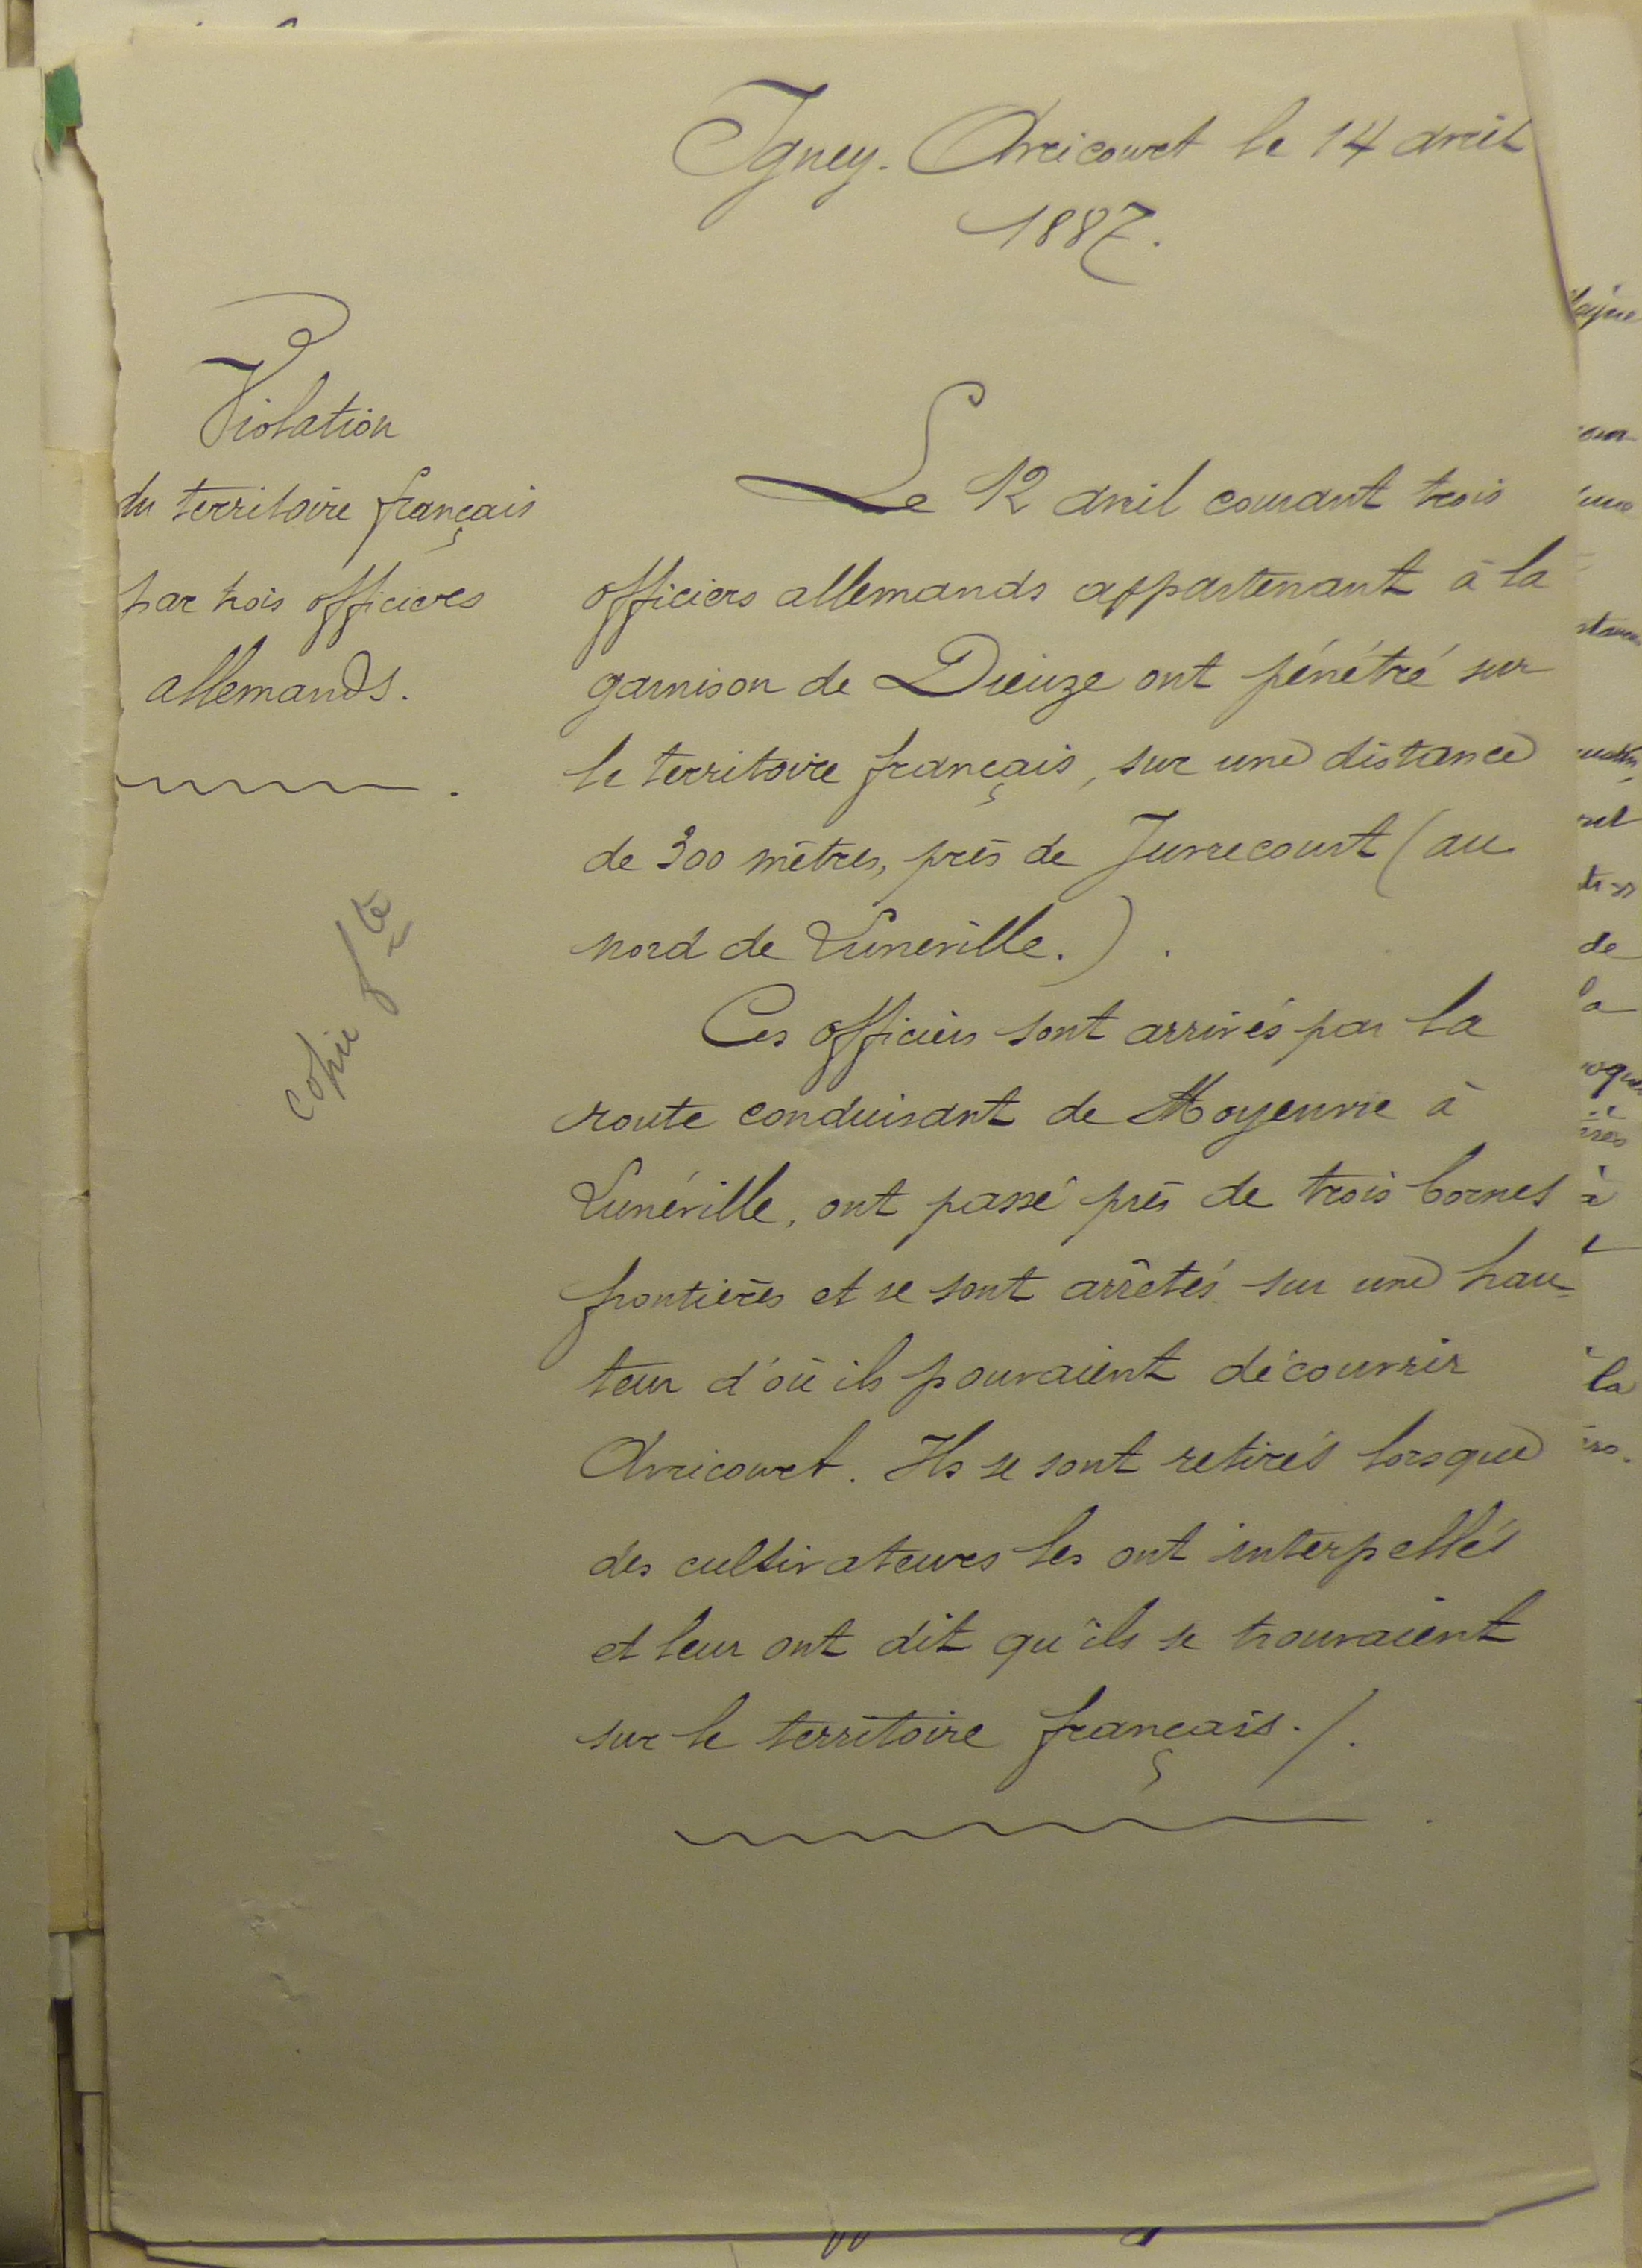 Igney. Avricourt le 14 avril
1887.
Violation
du territoire français
par trois officiers
allemands.
Copie
Le 12 avril courant trois
officiers allemands appartenant à la
garnison de Dieuze ont pénétré sur
le territoire français, sur une distance
de 300 mètres, près de Juvrecourt (au
nord de Lunéville.).
Ces officiers sont arrivés par la
route conduisant de Moyenvic à
Lunéville, ont passé près de trois bornes
frontières et se sont arrêtés sur une hau-
teur d'où ils pouvaient découvrir
Avricourt. Ils se sont retirés lorsque
des cultivateurs les ont interpellés
et leur ont dit qu'ils se trouvaient
sur le territoire français./.